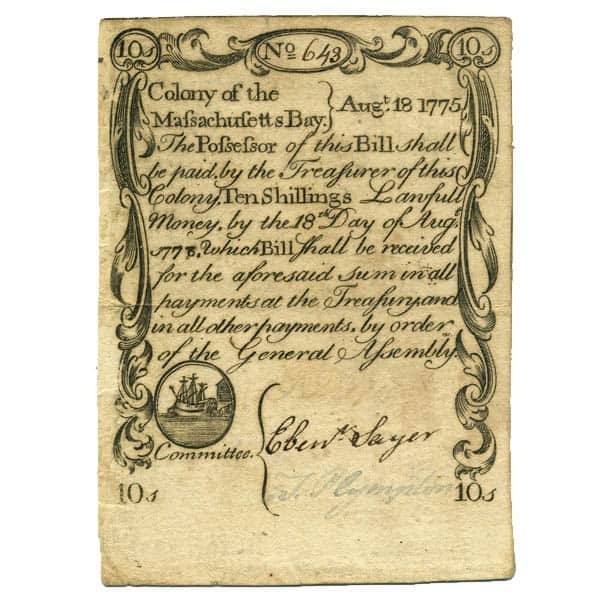 10s No 643 10s
Colony of the
Maſsachusetts Bay. } Augt. 18 1775
The Poſseſsor of this Bill shall
be paid, by the Treaſurer of this
Colony, Ten Shillings Lawfull
Money, by the 18th Day of Augt.
1778. Which Bill ſhall be received
for the aforesaid sum in all
payments at the Treaſury, and
in all other payments, by order
of the General Aſsembly.
Committee. { Ebenr. Sayer
10s J. Plympton 10s